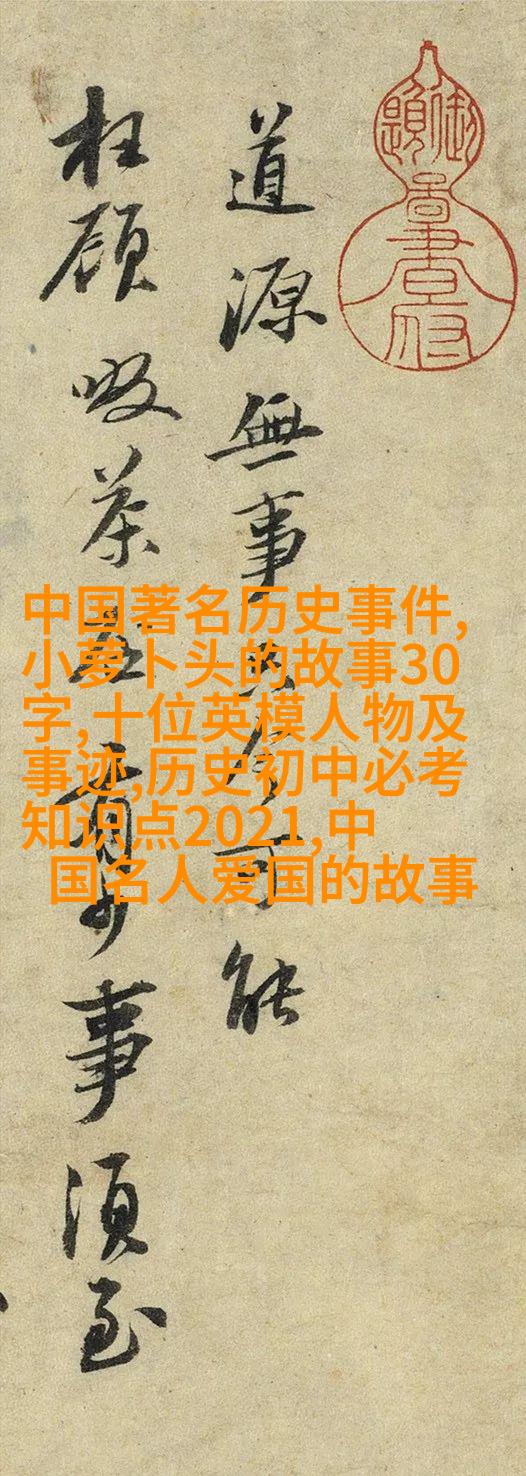 道源無事只今可能
枉顧啜茶否有少事須至
中国著名历史事件,
小萝卜头的故事30
字,十位英模人物及
事迹,历史初中必考
知识点2021,中
国名人爱国的故事